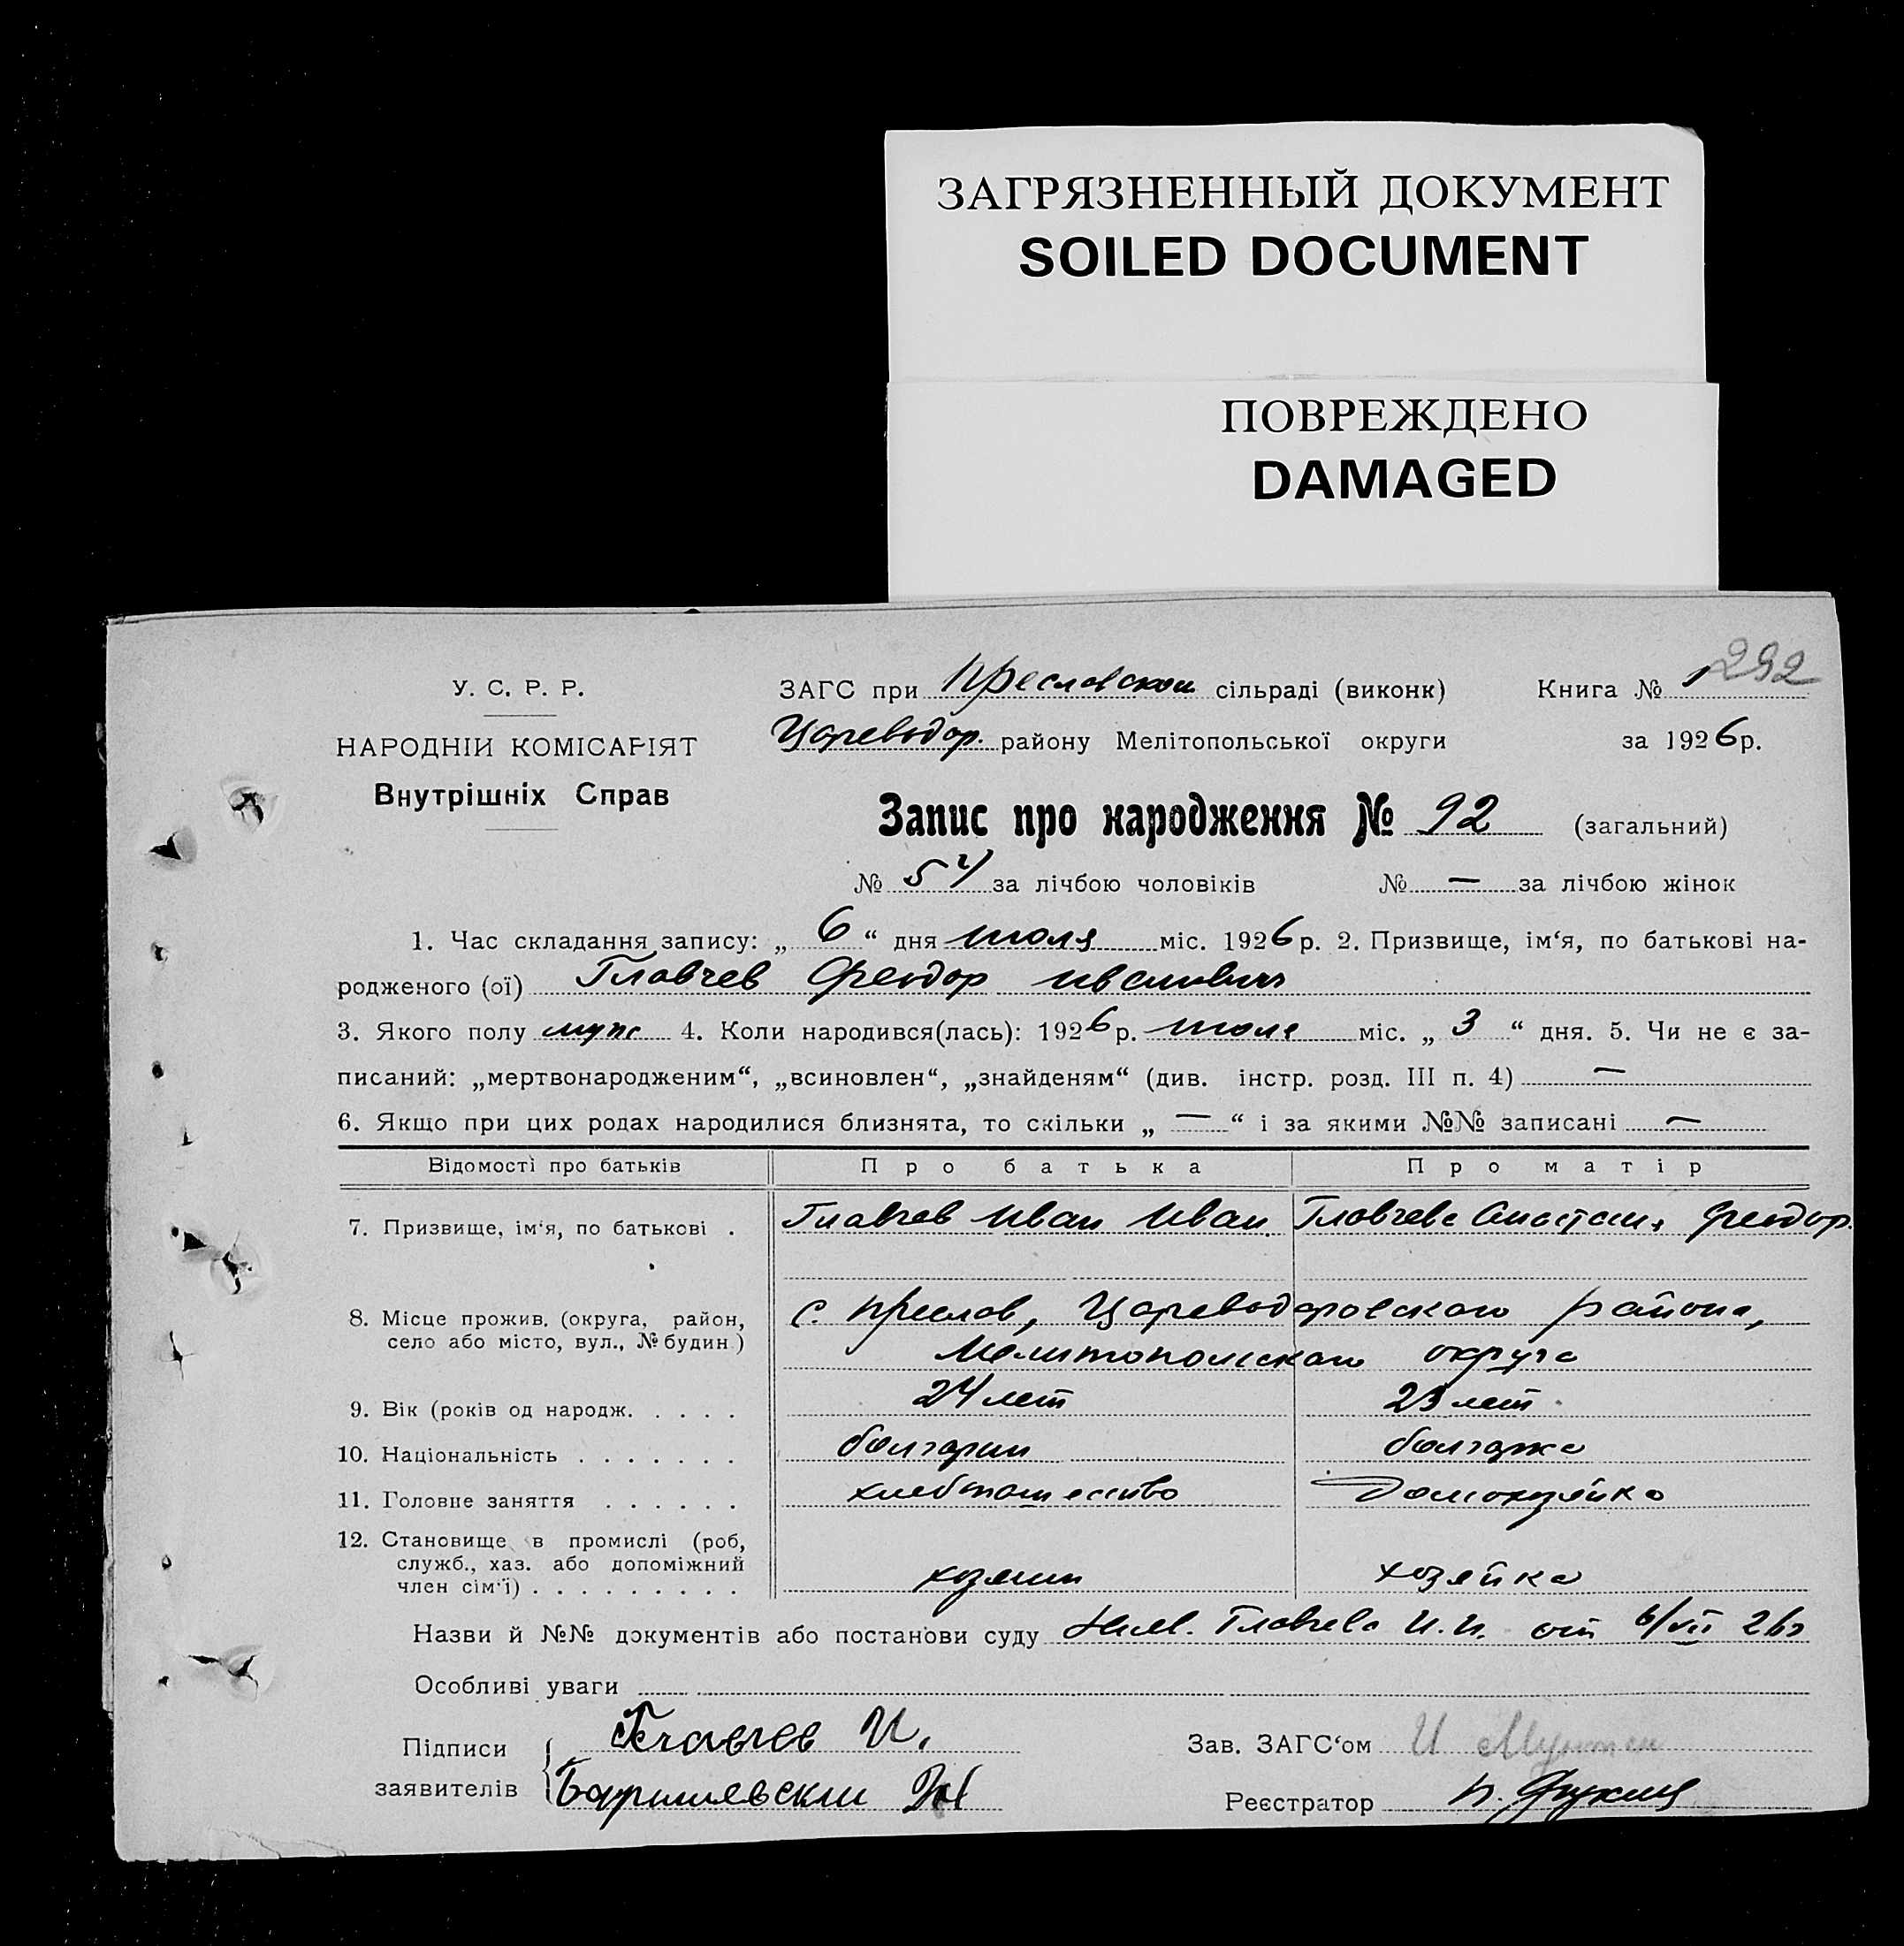 ЗАГРЯЗНЕННЫЙ ДОКУМЕНТ
SOILED DOCUMENT
ПОВРЕЖДЕНО
DAMAGED
292
У. С. Р. Р.
НАРОДНІЙ КОМІСАРІЯТ
Внутрішніх Справ
ЗАГС при Преславском сільраді (виконк)
Книга № 1
Цареводар. району Мелітопольської округи
за 1926р.
Запис про народження № 92 (загальний)
№ 54 за лічбою чоловіків № — за лічбою жінок
1. Час складання запису: „ 6 “ дня июля міс. 1926 р. 2. Призвище, ім‘я, по батькові на-
родженого (ої) Главчев Феодор Иванович
3. Якого полу муж 4. Коли народився(лась): 1926 р. июля міс. „ 3 “ дня. 5. Чи не є за-
писаний: „мертвонародженим“, „всиновлен“, „знайденям“ (див. інстр. розд. III п. 4) —
6. Якщо при цих родах народилися близнята, то скільки „ — “ і за якими №№ записані —
Відомості про батьків Про батька Про матір
7. Призвище, ім‘я, по батькові . Главчев Иван Иван. Главчева Анастасия Феодор.
8. Місце прожив. (округа, район,
село або місто, вул., № будин.)
с. Преслав, Цареводаровского района,
Мелитопольского округа
9. Вік (років од народж. . . . . 24 лет 23 лет.
10. Національність . . . . . . . болгарин болгарка
11. Головне заняття . . . . . . хлебопашество Домохозяйка
12. Становище в промислі (роб,
служб., хаз. або допоміжний
член сім‘ї) . . . . . . . . . хозяин хозяйка
Назви й №№ документів або постанови суду Главчева И. И. от 6/VII 26г
Особливі уваги
Підписи
заявителів
Главчев И.
Зав. ЗАГС‘ом И
Реєстратор П.